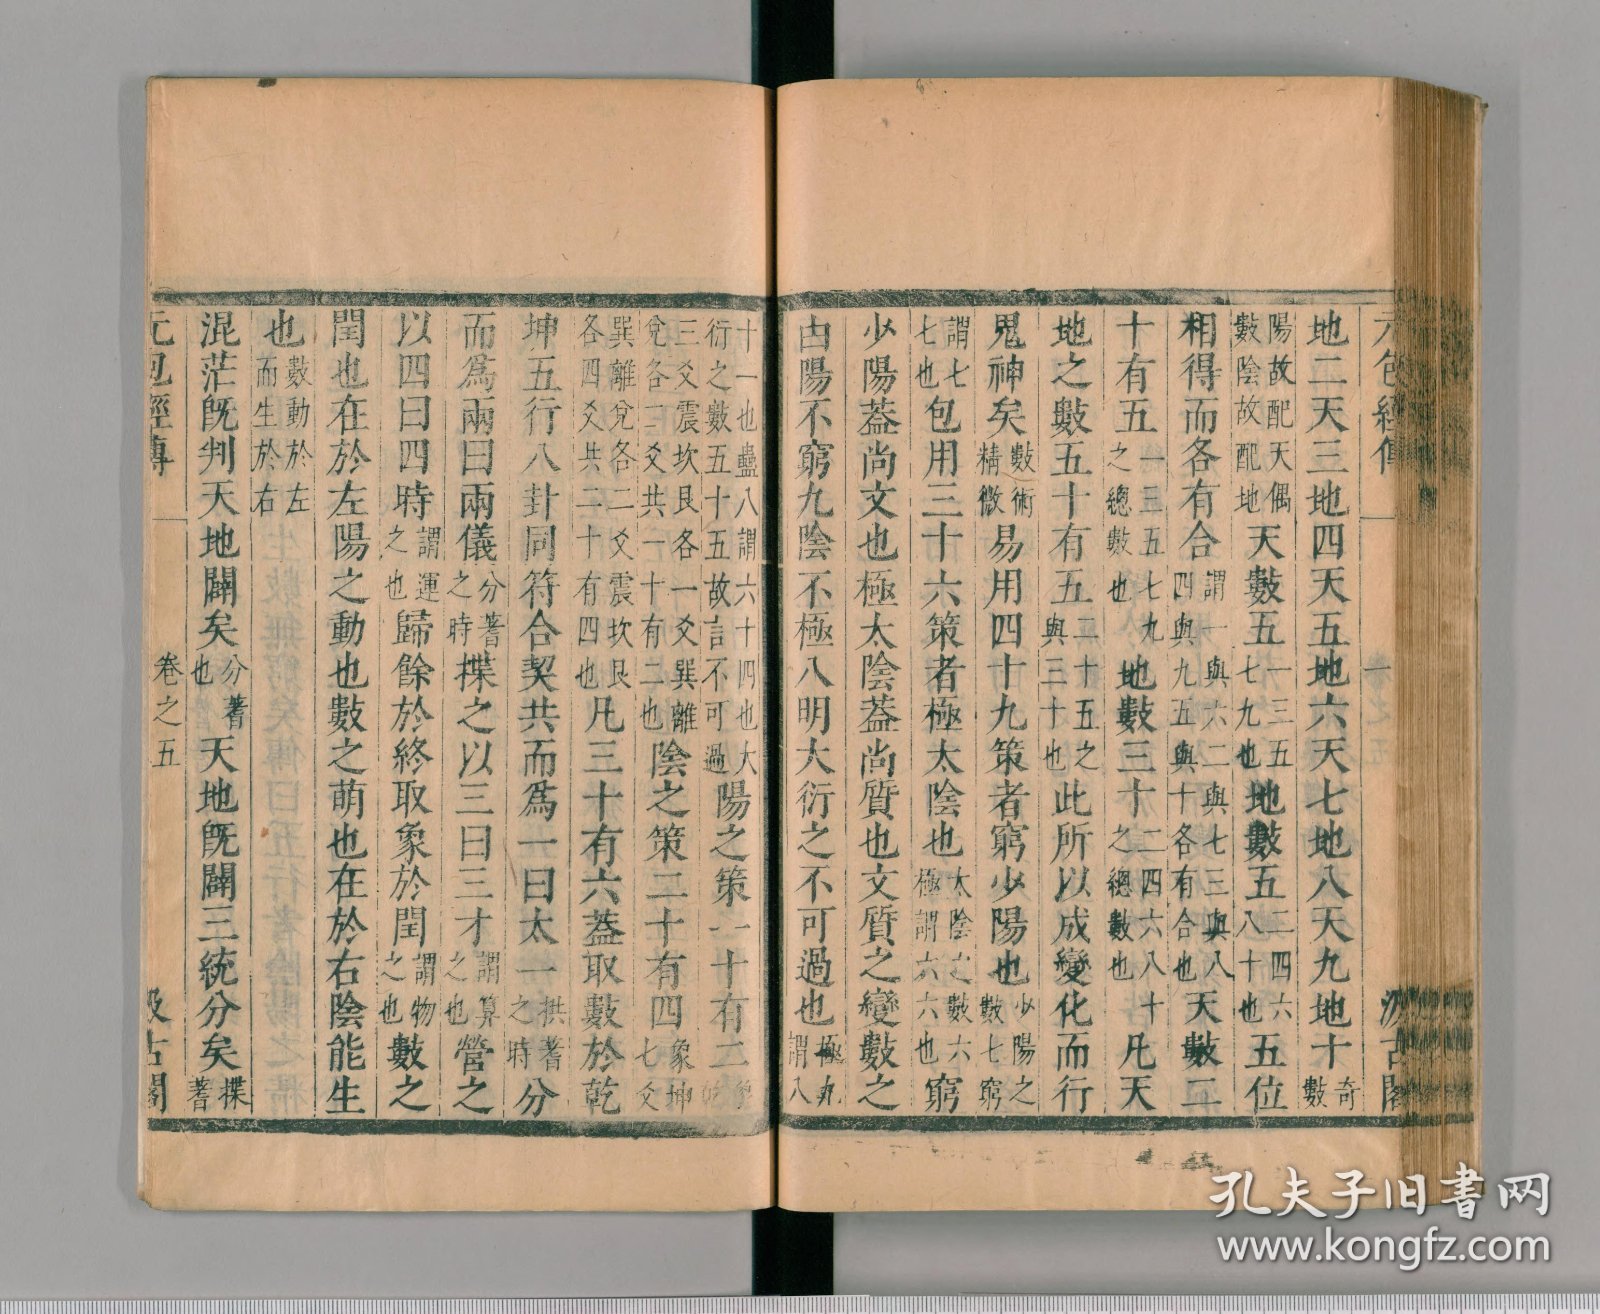 元包經傳 汲古閣
地二天三地四天五地六天七地八天九地十奇數
陽故配天偶數陰故配地天數五一三五七九也地數五二四六八十也五位
相得而各有合謂一與六二與七三與八四與九五與十各有合也天數二
十有五一三五七九之總數也地數三十二四六八十之總數也凡天
地之數五十有五二十五之與三十也此所以成變化而行
鬼神矣數術精微易用四十九策者窮少陽也少陽之數七窮
謂七七也包用三十六策者極太陰也太陰之數六極謂六六也窮
少陽蓋尚文也極太陰蓋尚質也文質之變數之
陽不窮九陰不極八明大衍之不可過也極九謂八
十一也蠱八謂六十四也大衍之數五十五故言不可過陽之策一十有二象乾
三爻震坎艮各一爻巽離兌各二爻共一十有二也陰之策二十有四象坤七爻
巽離兌各二爻震坎艮各四爻共二十有四也凡三十有六蓋取數於乾
坤五行八卦同符合契共而爲一曰太一拱蓍之時分
而爲兩曰兩儀分蓍之時揲之以三曰三才謂算之也營之
以四曰四時謂運之也歸餘於終取象於閏謂物之也數之
閏也在於左陽之動也數之萌也在於右陰能生
也數動於左而生於右
混茫旣判天地闢矣分蓍也天地旣闢三統分矣揲蓍
元包經傳 卷之五 汲古閣
孔夫子旧书网
www.kongfz.com